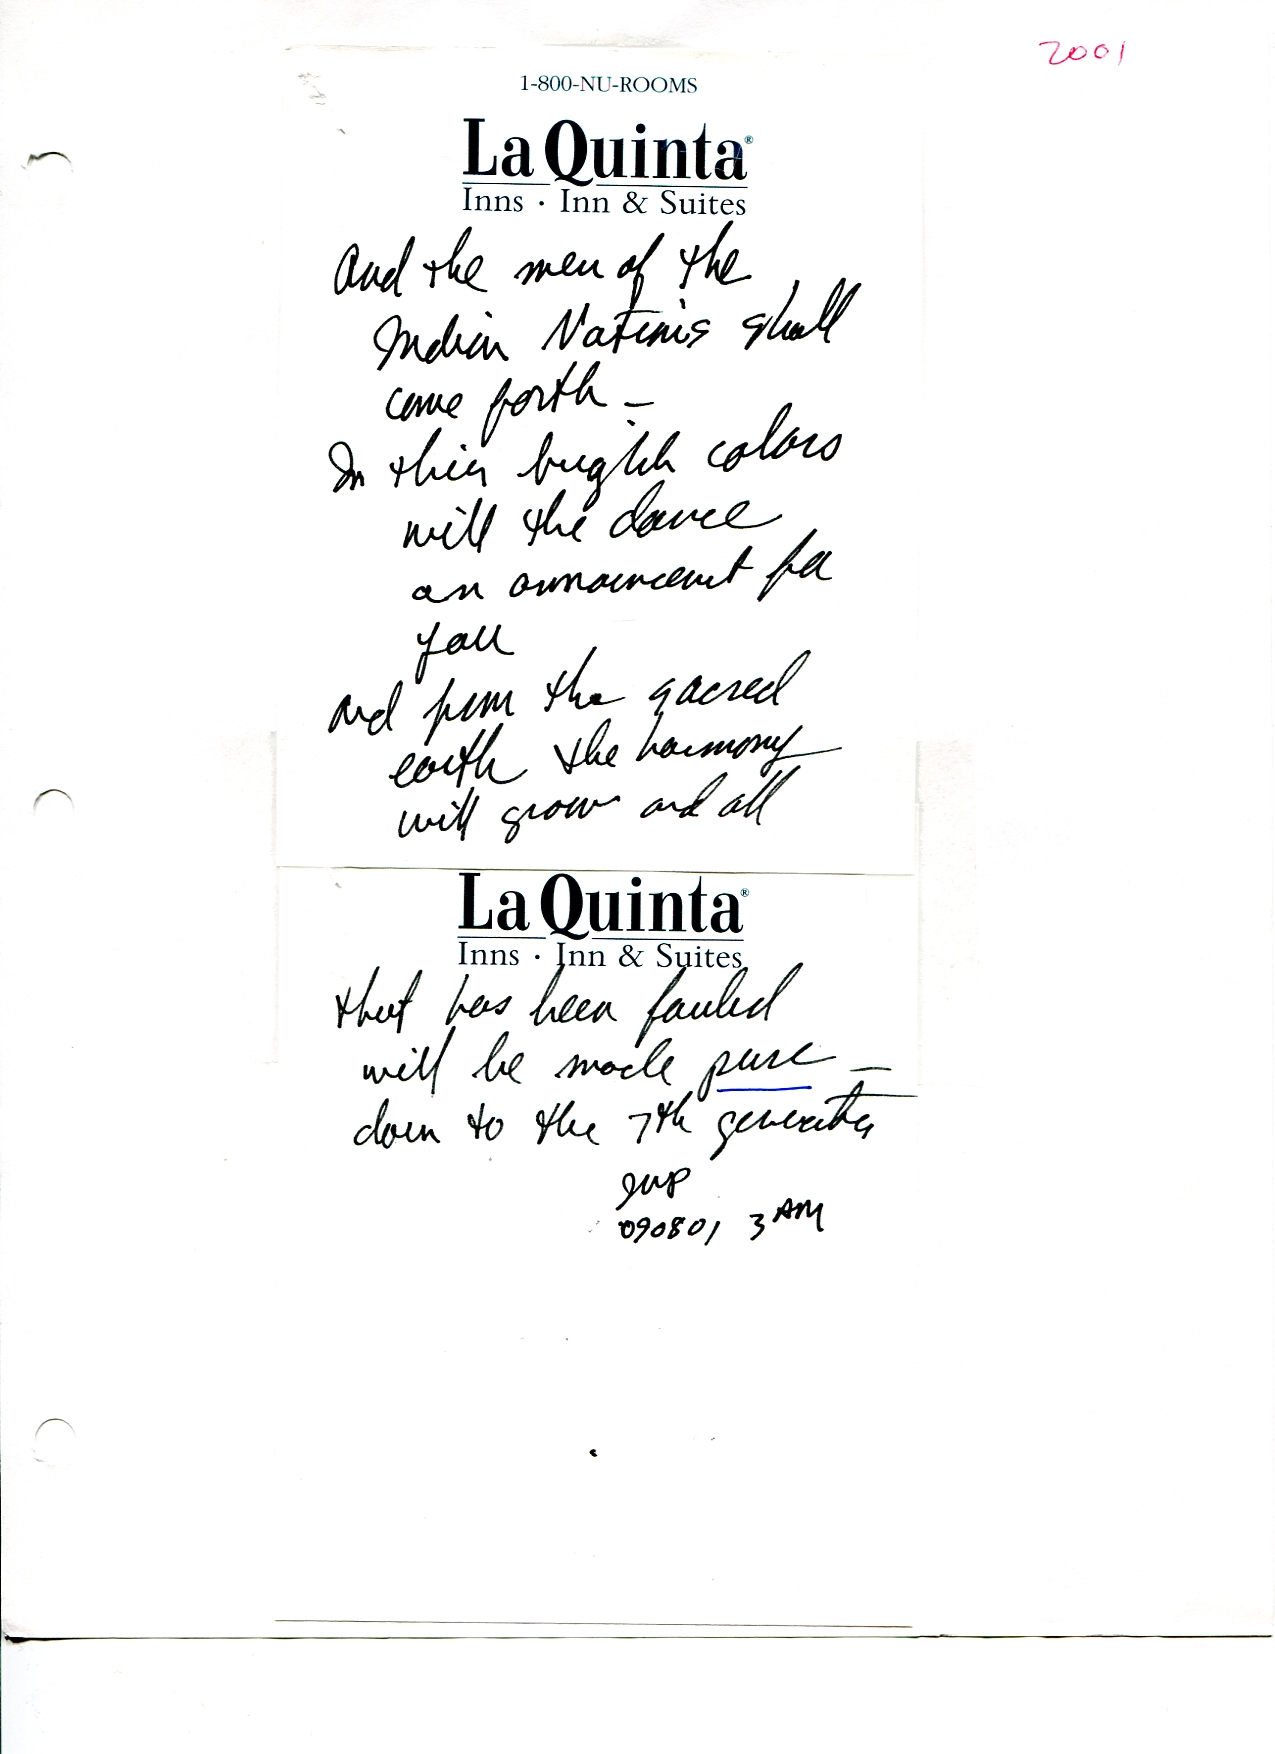 2001
1-800-NU-ROOMS
La Quinta®
Inns · Inn & Suites
And the men of the
Indian Nations shall
come forth –
In thier bright colors
will the dance
an announcement for
you
and from the sacred
earth the harmony
will grow and all
La Quinta®
Inns · Inn & Suites
that has been fouled
will be made pure –
down to the 7th generation
090801 3 AM